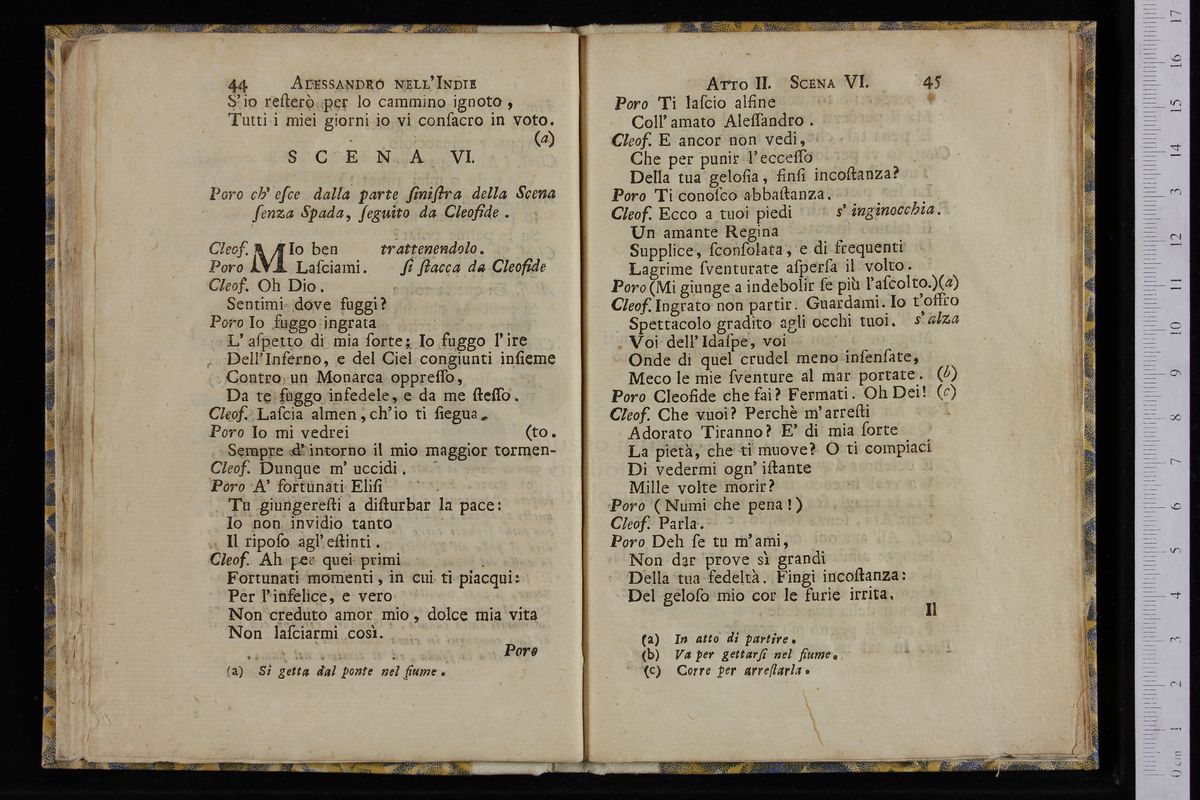 44 ALESSANDRO NELL'INDIE
S'io reſterò per lo cammino ignoto,
Tutti i miei giorni io vi conſacro in voto.
(a)
SCENA VI.
Poro ch' eſce dalla parte ſiniſtra della Scena
ſenza Spada, ſeguito da Cleofide.
Cleof. MIo ben trattenendolo.
Poro Laſciami. ſi ſtacca da Cleofide
Cleof. Oh Dio.
Sentimi dove fuggi?
Poro Io fuggo ingrata
L' aſpetto di mia ſorte; Io fuggo l'ire
Dell'Inferno, e del Ciel congiunti inſieme
Contro un Monarca oppreſſo,
Da te fuggo infedele, e da me ſteſſo.
Cleof. Laſcia almen, ch'io ti ſiegua.
Poro Io mi vedrei (to.
Sempre d'intorno il mio maggior tormen-
Cleof. Dunque m' uccidi.
Poro A' fortunati Eliſi
Tu giungereſti a diſturbar la pace:
Io non invidio tanto
Il ripoſo agl' eſtinti.
Cleof. Ah per quei primi
Fortunati momenti, in cui ti piacqui:
Per l'infelice, e vero
Non creduto amor mio, dolce mia vita
Non laſciarmi così.
Poro
(a) Si getta dal ponte nel fiume.
ATTO II. SCENA VI. 45
Poro Ti laſcio alfine
Coll' amato Aleſſandro.
Cleof. E ancor non vedi,
Che per punir l'ecceſſo
Della tua geloſia, finſi incoſtanza?
Poro Ti conoſco abbaſtanza.
Cleof. Ecco a tuoi piedi s' inginocchia.
Un amante Regina
Supplice, ſconſolata, e di frequenti
Lagrime ſventurate aſperſa il volto.
Poro (Mi giunge a indebolir ſe più l'aſcolto.)(a)
Cleof. Ingrato non partir. Guardami. Io t'offro
Spettacolo gradito agli occhi tuoi. s'alza
Voi dell' Idaſpe, voi
Onde di quel crudel meno inſenſate,
Meco le mie ſventure al mar portate. (b)
Poro Cleofide che fai? Fermati. Oh Dei! (c)
Cleof. Che vuoi? Perchè m'arreſti
Adorato Tiranno? E' di mia ſorte
La pietà, che ti muove? O ti compiaci
Di vedermi ogn' iſtante
Mille volte morir?
Poro (Numi che pena!)
Cleof. Parla.
Poro Deh ſe tu m'ami,
Non dar prove sì grandi
Della tua fedeltà. Fingi incoſtanza:
Del geloſo mio cor le furie irrita.
Il
(a) In atto di partire.
(b) Va per gettarſi nel fiume.
(c) Corre per arreſtarla.
0 cm 1 2 3 4 5 6 7 8 9 10 11 12 13 14 15 16 17